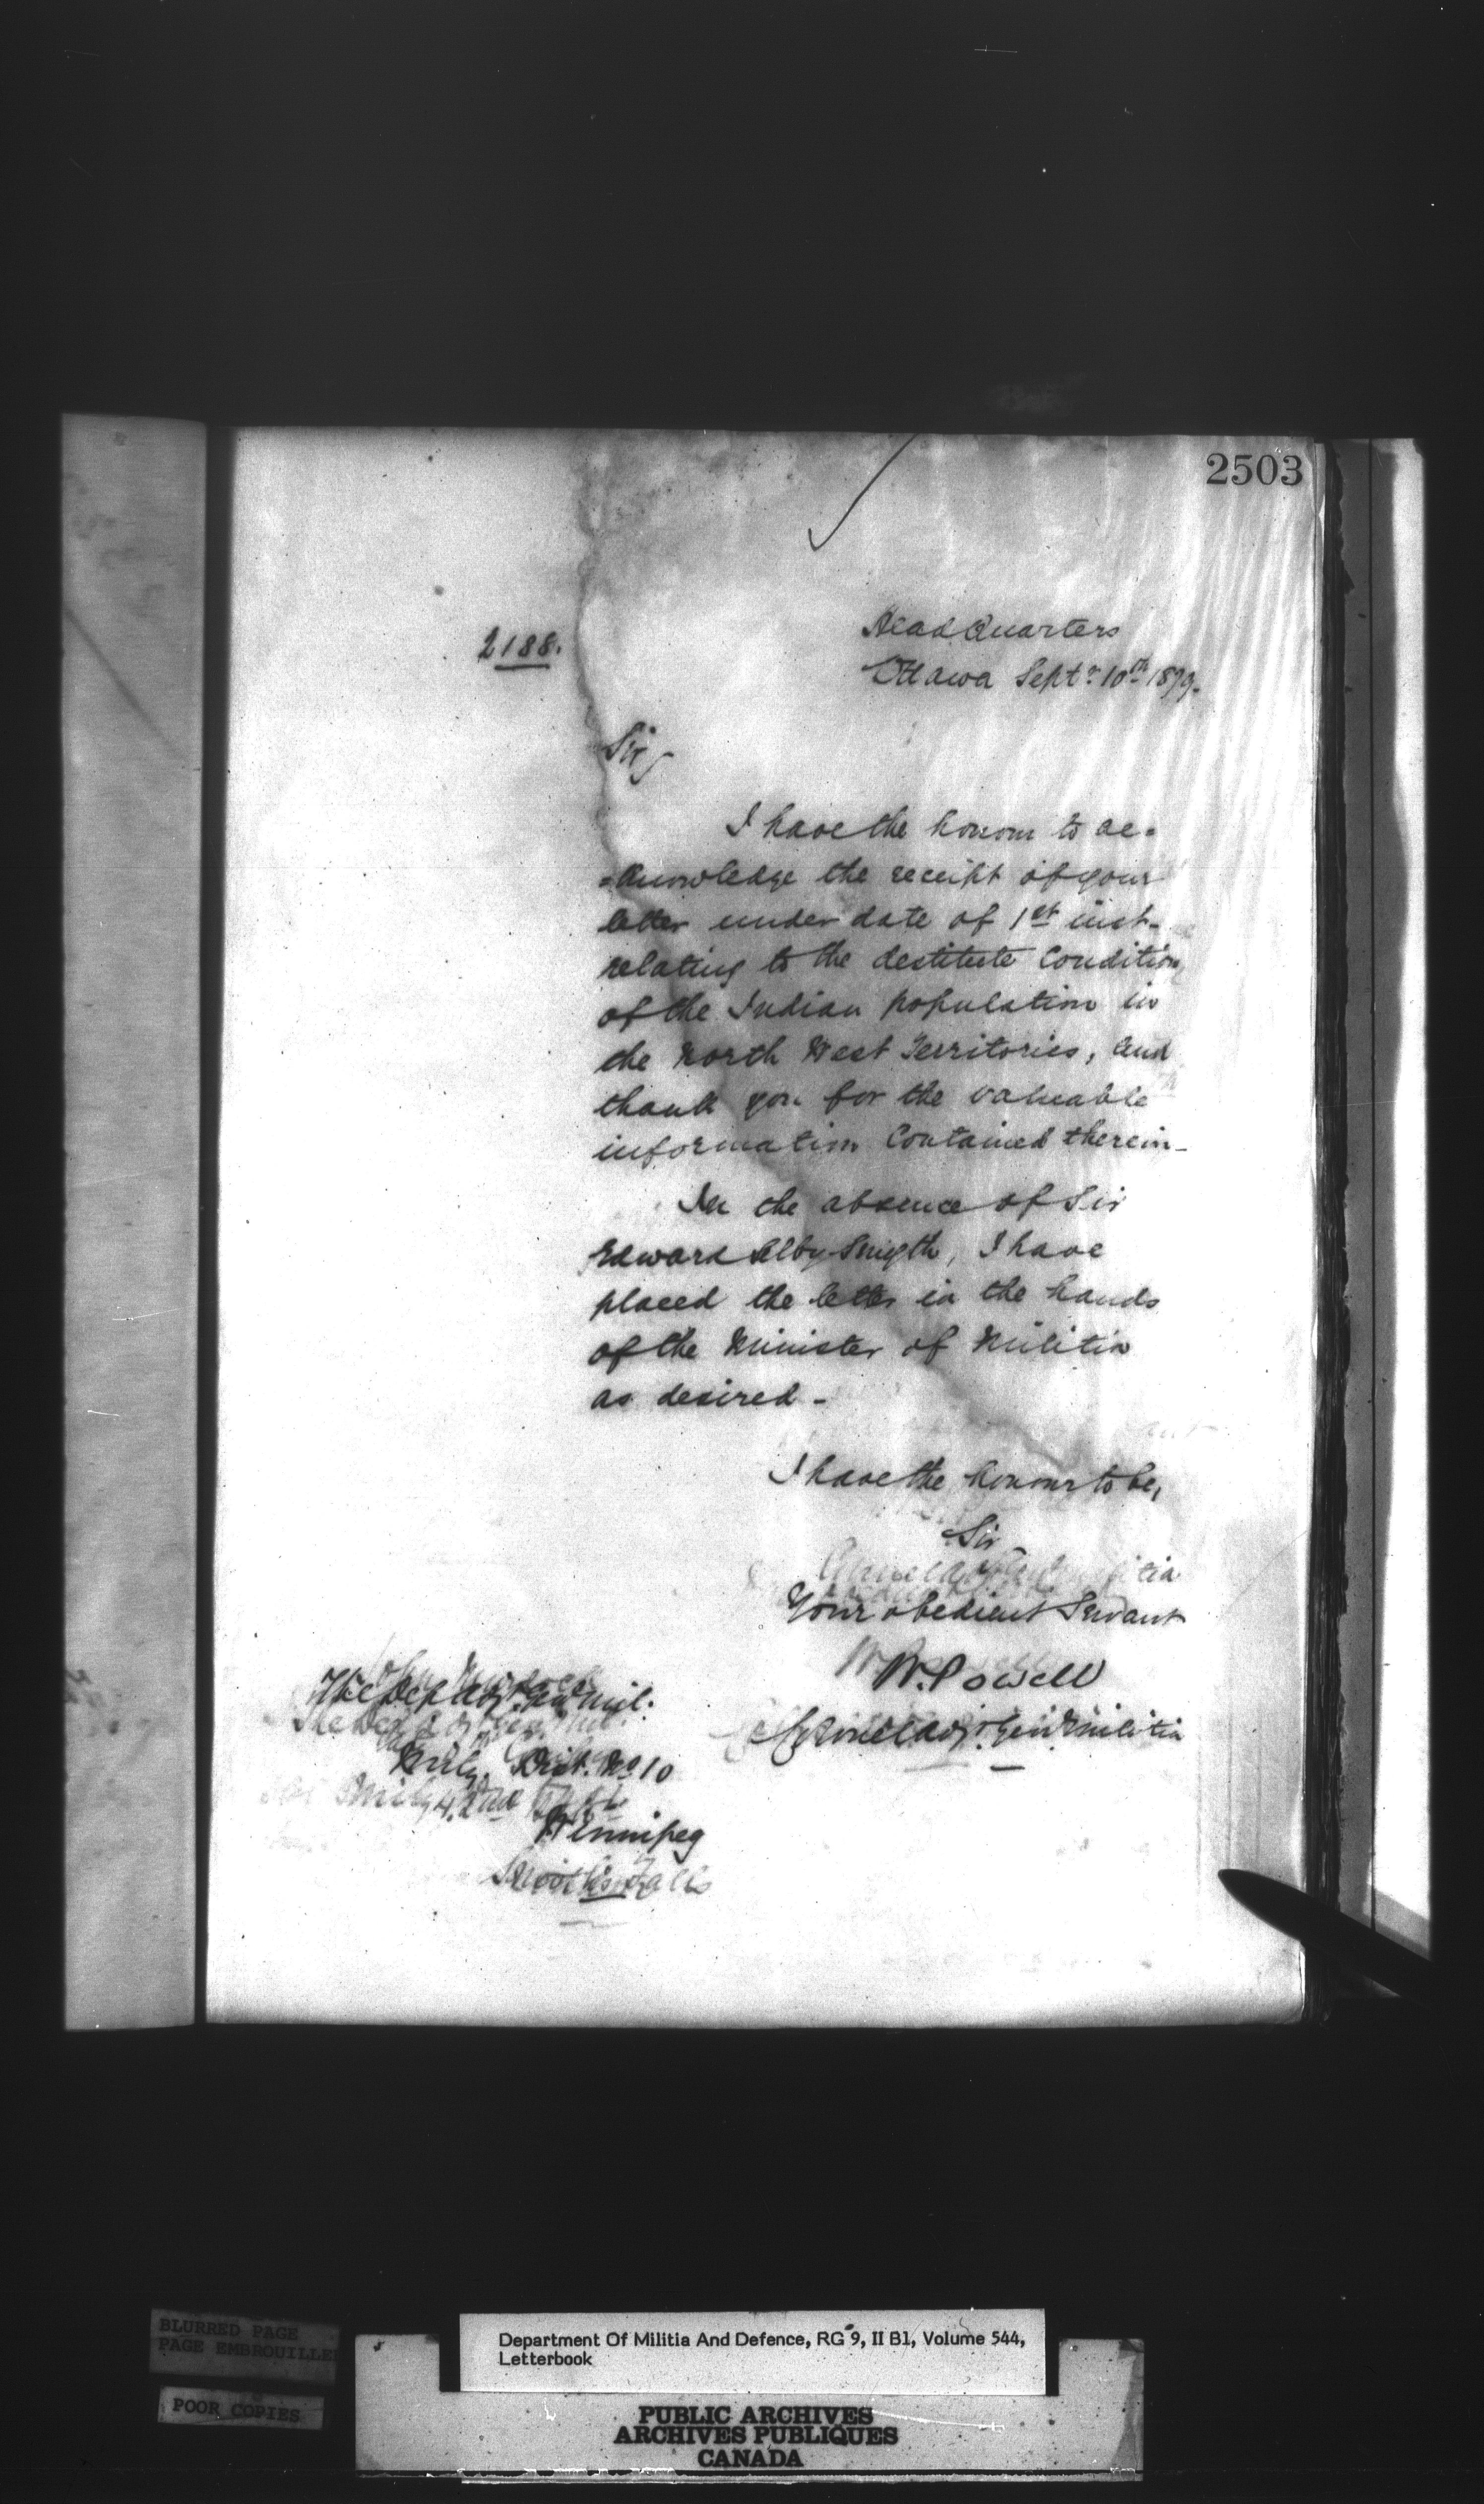 2503
2188.
Head Quarters
Ottawa Septr. 10th 1879.
Sir,
I have the honour to ac=
=knowledge the receipt of your
letter under date of 1st inst.
relating to the destitute condition
of the Indian population in
the North West Territories, and
thank you for the valuable
information contained therein_
In the absence of Sir
Edward Selby Smyth, I have
placed the letter in the hands
of the Minister of Militia
as desired_
I have the honour to be,
Sir
Your obedient Servant
W. Powell
Colonel Adjt. Genl Militia
The Dep Adj. Gen Mil.
Mily. Dist. No 10
Winnipeg
Smiths Falls
BLURRED PAGE
PAGE EMBROUILLE
POOR COPIES
Department Of Militia And Defence, RG 9, II B1, Volume 544,
Letterbook
PUBLIC ARCHIVES
ARCHIVES PUBLIQUES
CANADA